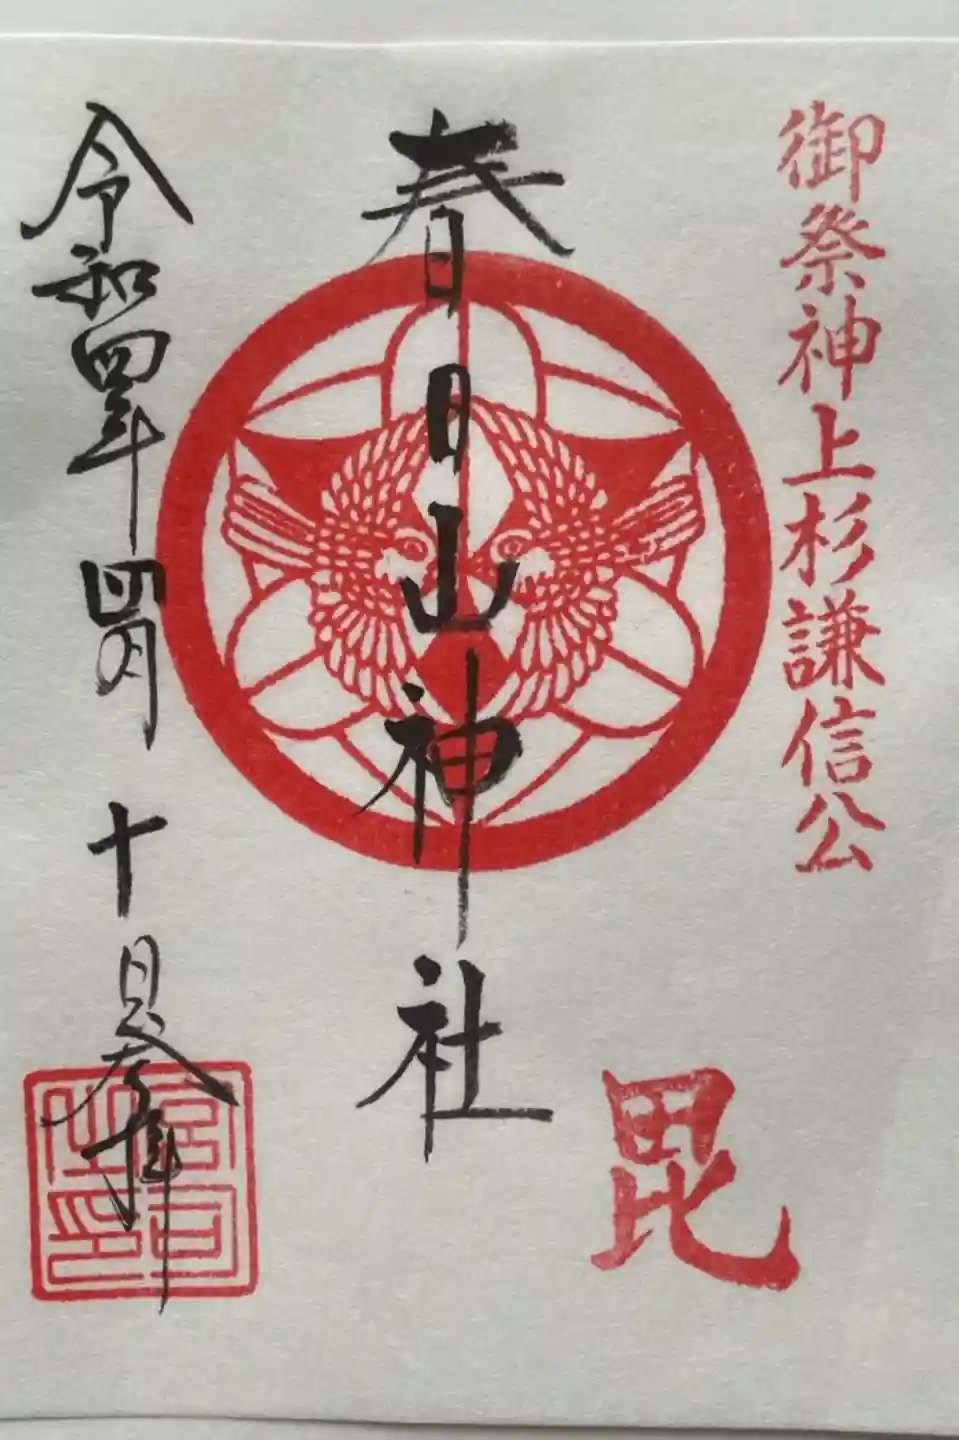 御祭神上杉謙信公
毘
春日山神社
令和四年四月十日参拝
宮司之印